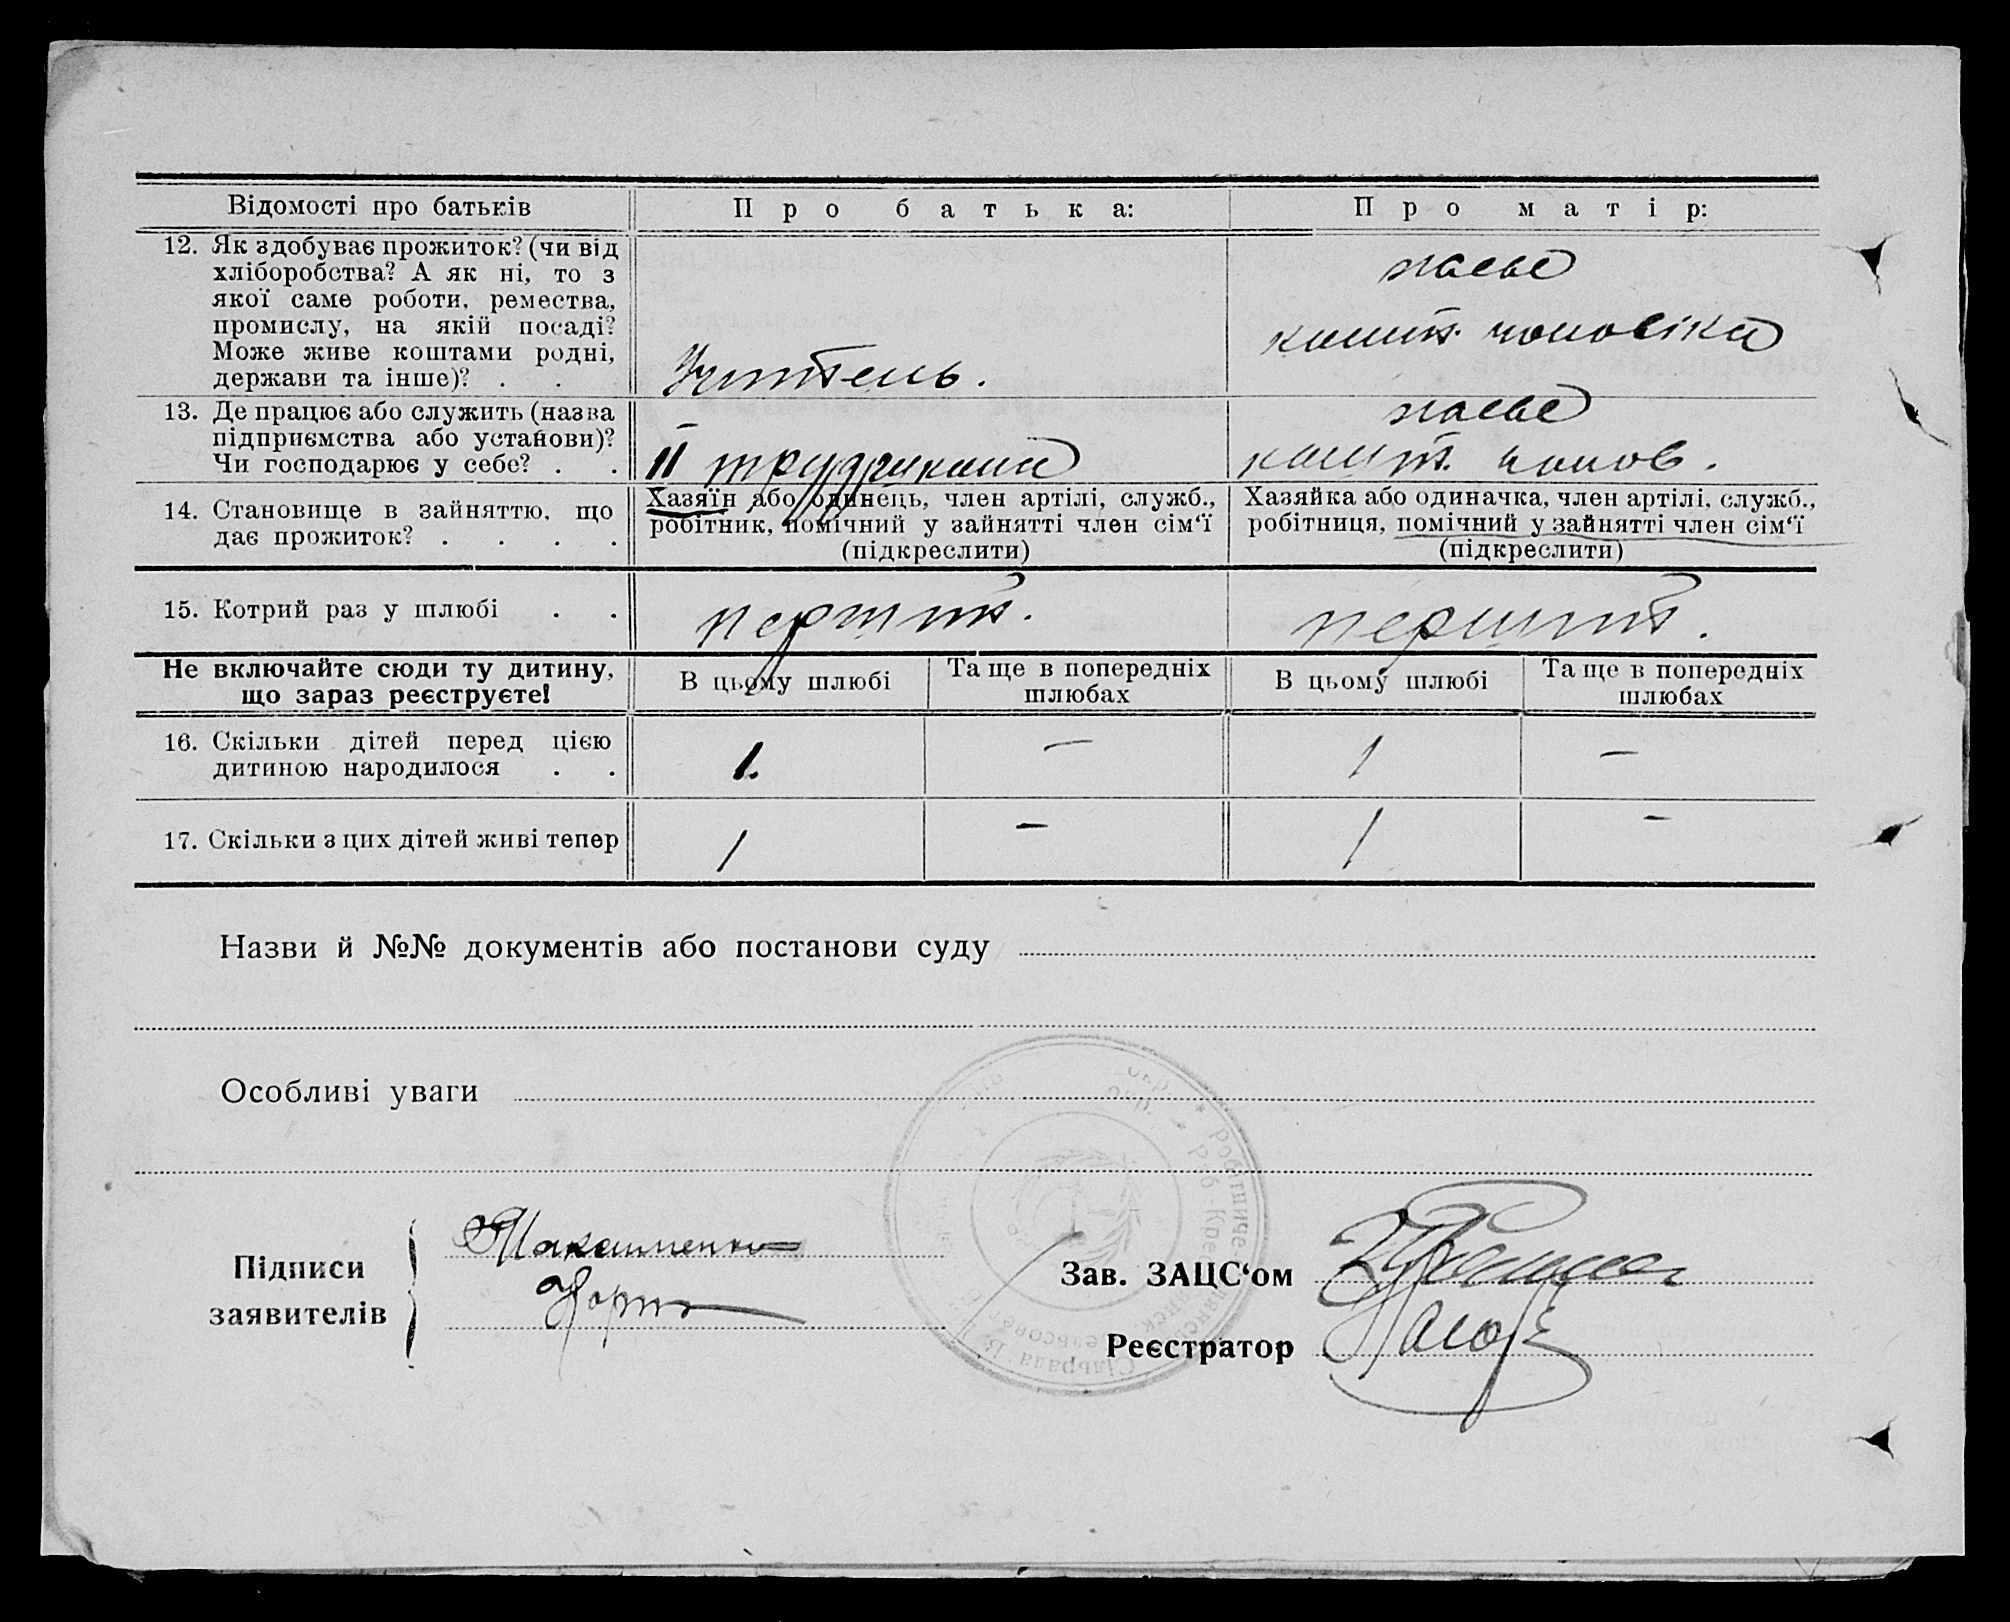 Відомості про батьків
Про батька:
Про матір:
12. Як здобуває прожиток? (чи від
хліборобства? А як ні, то з
якої саме роботи, ремества,
промислу, на якій посаді?
Може живе коштами родні,
держави та інше)? . .
Учитель.
має
кошт. чоловіка
13. Де працює або служить (назва
підприємства або установи)?
Чи господарює у себе? . .
II трудшкола
має
кошт. чолов.
14. Становище в зайняттю, що
дає прожиток? . . . .
Хазяїн або одинець, член артілі, служб.,
робітник, помічний у зайнятті член сім‘ї
(підкреслити)
Хазяйка або одиначка, член артілі, служб.,
робітниця, помічний у зайнятті член сім‘ї
(підкреслити)
15. Котрий раз у шлюбі . .
перший.
перший.
Не включайте сюди ту дитину,
що зараз реєструєте!
В цьому шлюбі
Та ще в попередніх
шлюбах
В цьому шлюбі
Та ще в попередніх
шлюбах
16. Скільки дітей перед цією
дитиною народилося . .
1.
—
1
—
17. Скільки з цих дітей живі тепер
1
—
1
—
Назви й №№ документів або постанови суду
Особливі уваги
Підписи
заявителів
Зав. ЗАЦС‘ом
Реєстратор